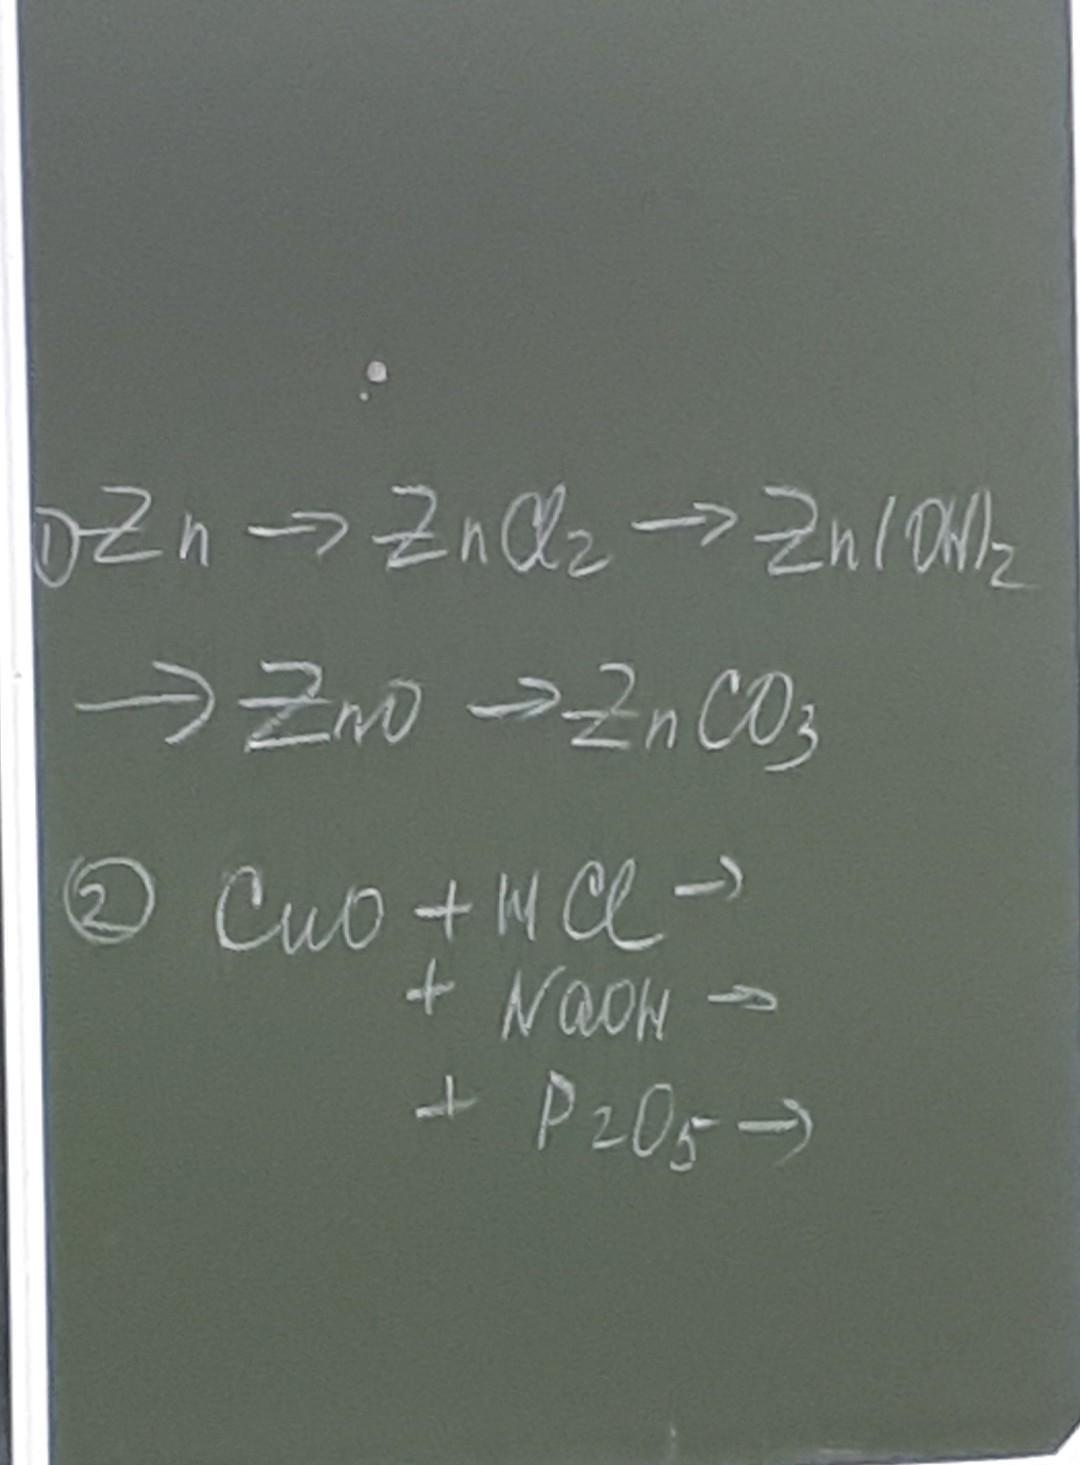 1) Zn → ZnCl2 → Zn(OH)2
→ ZnO → ZnCO3
② CuO + HCl →
+ NaOH →
+ P2O5 →